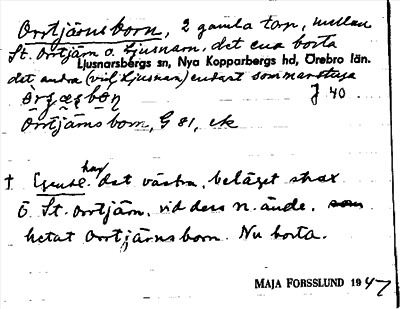 Orrtjärnsborn, 2 gamla torp, mellan
St. Orrtjärn o. Ljusnarn, det ena borta
Ljusnarsbergs sn, Nya Kopparbergs hd, Örebro län.
det andra (vid Ljusnarn) endast sommarstuga
J 40.
Orrtjärnsborn, G 81, ek
† har
det västra, beläget strax
Ö. St. Orrtjärn, vid dess n. ände,
hetat Orrtjärnsborn. Nu borta.
MAJA FORSSLUND 1947